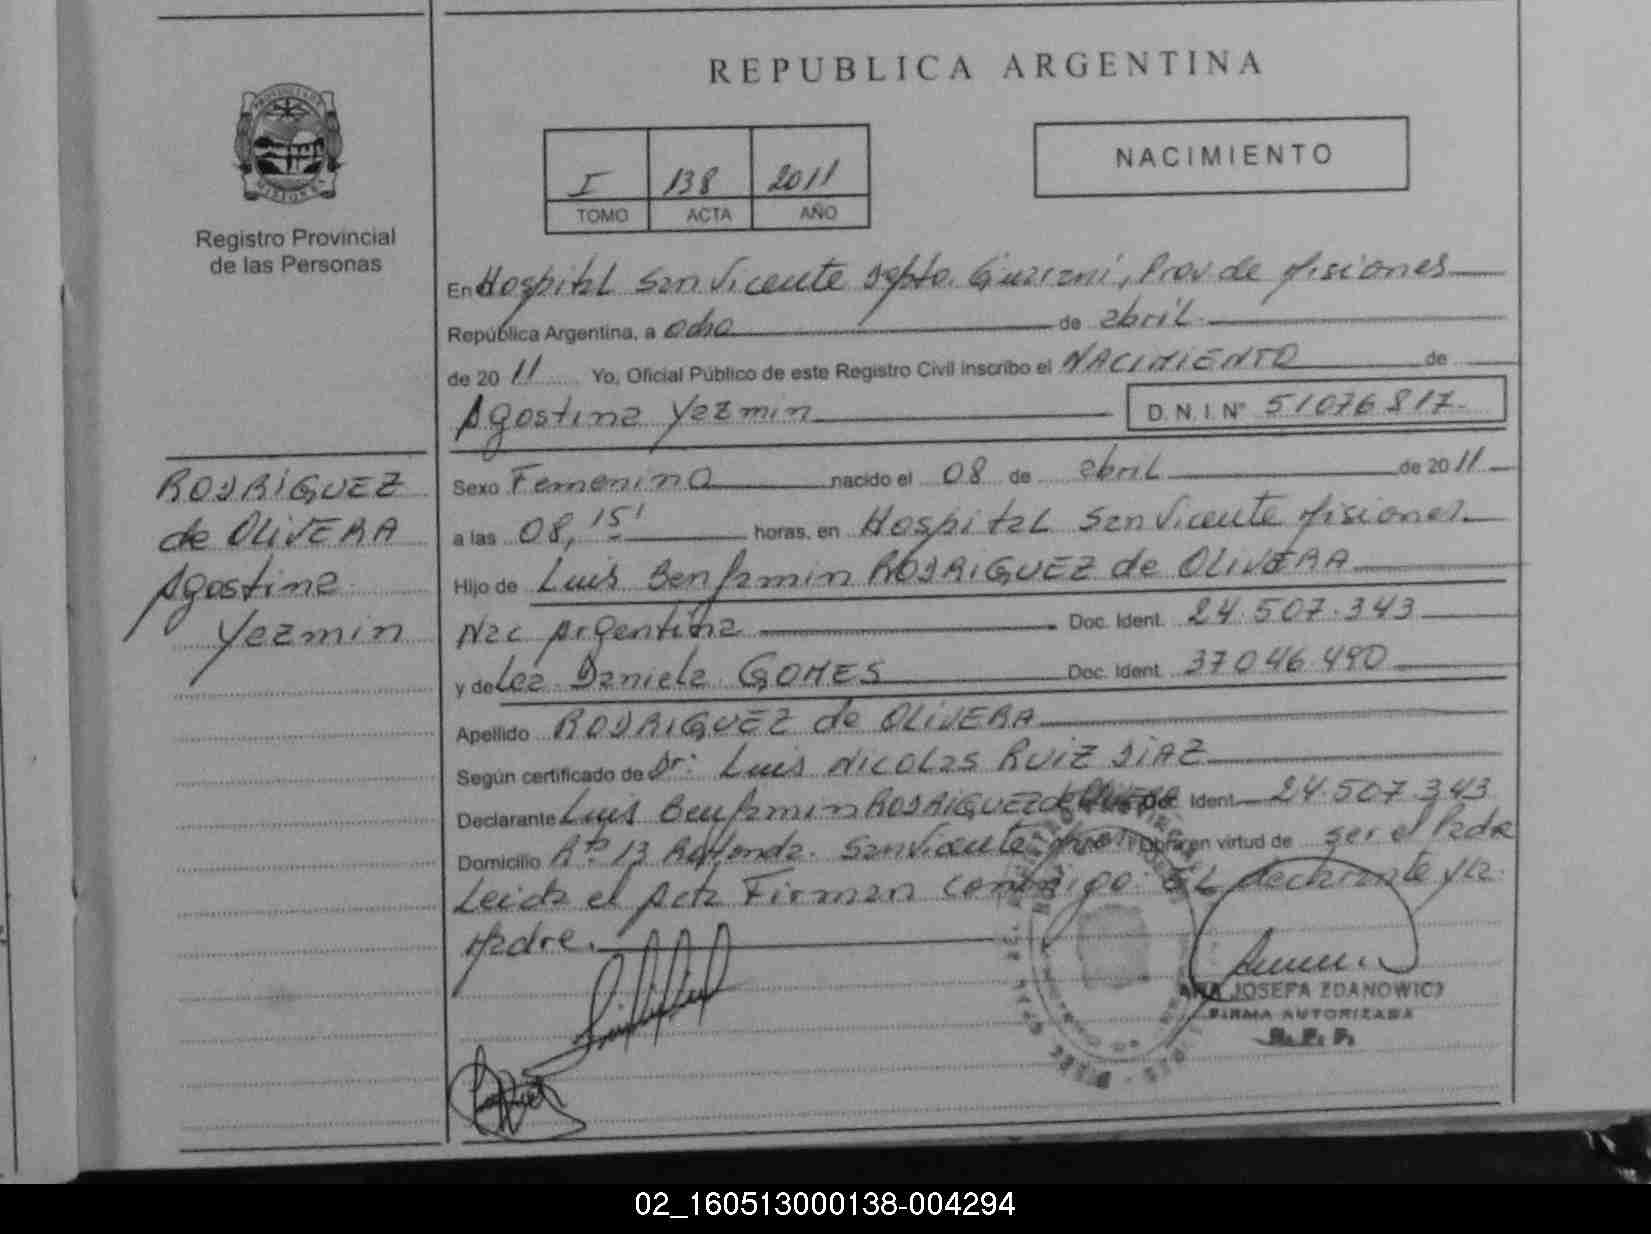 REPUBLICA ARGENTINA
PROVINCIA DE
MISIONES
Registro Provincial
de las Personas
I 138 2011
TOMO ACTA AÑO
NACIMIENTO
En Hospital San Vicente Depto. Guaraní, Prov de Misiones
República Argentina, a ocho de abril
de 20 11 Yo, Oficial Público de este Registro Civil inscribo el NACIMIENTO de
Agostina Yazmin D. N. I. Nº 51076817
RODRIGUEZ
de OLIVERA
Agostina
Yazmin
Sexo Femenino nacido el 08 de abril de 20 11
a las 08,15' horas, en Hospital San Vicente Misiones
Hijo de Luis Benjamin RODRIGUEZ de OLIVERA
Nac Argentina Doc. Ident. 24.507.343
y de Lea Daniela GOMES Doc. Ident. 37046.490
Apellido RODRIGUEZ de OLIVERA
Según certificado de Dr: Luis Nicolas RUIZ DIAZ
Declarante Luis Benjamin RODRIGUEZ de OLIVERA Doc. Ident. 24.507.343
Domicilio Rta 13 San Vicente Obra en virtud de ser el Padre
Leida el Acta Firman conmigo EL declarante y la
Madre.
ANA JOSEFA ZDANOWICZ
FIRMA AUTORIZADA
R. P. P.
02_160513000138-004294